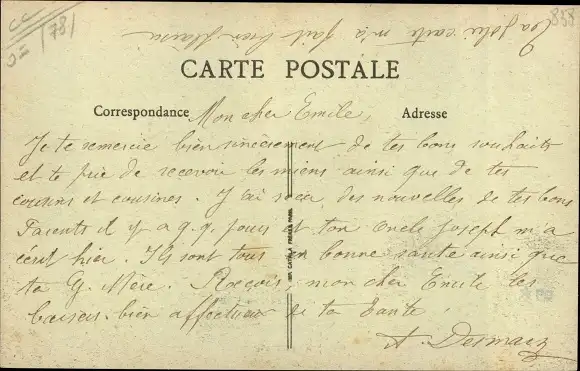 Ta jolie carte m'a fait bien plaisir
CC
781
858
CARTE POSTALE
Correspondance
Adresse
Mon cher Emile,
Je te remercie bien sincèrement de tes bons souhaits
et te prie de recevoir les miens ainsi que de tes
cousins et cousines. J'ai reçu des nouvelles de tes bons
Parents il y a q.q. jours et ton Oncle Joseph m'a
écrit hier. Ils sont tous en bonne santé ainsi que
ta G. Mère. Reçois, mon cher Emile les
baisers bien affectueux de ta Tante.
A. Desmarez
IMP. CATALA FRÈRES PARIS